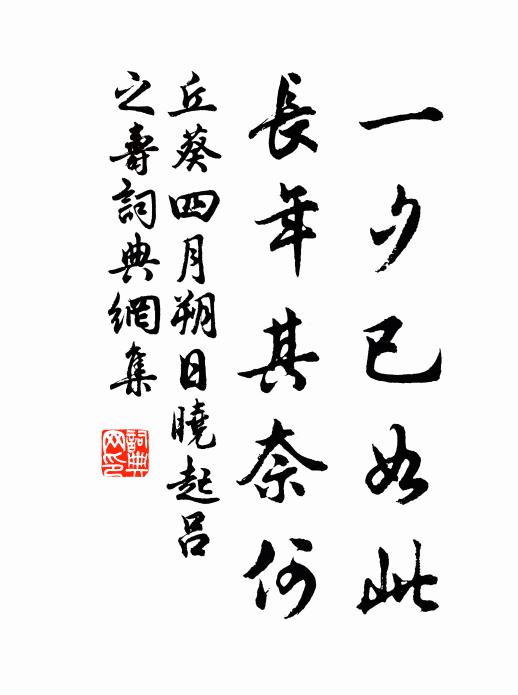 一夕已如此
長年其奈何
丘葵四月朔日曉起呂
之壽詞典網集
詞典
网印